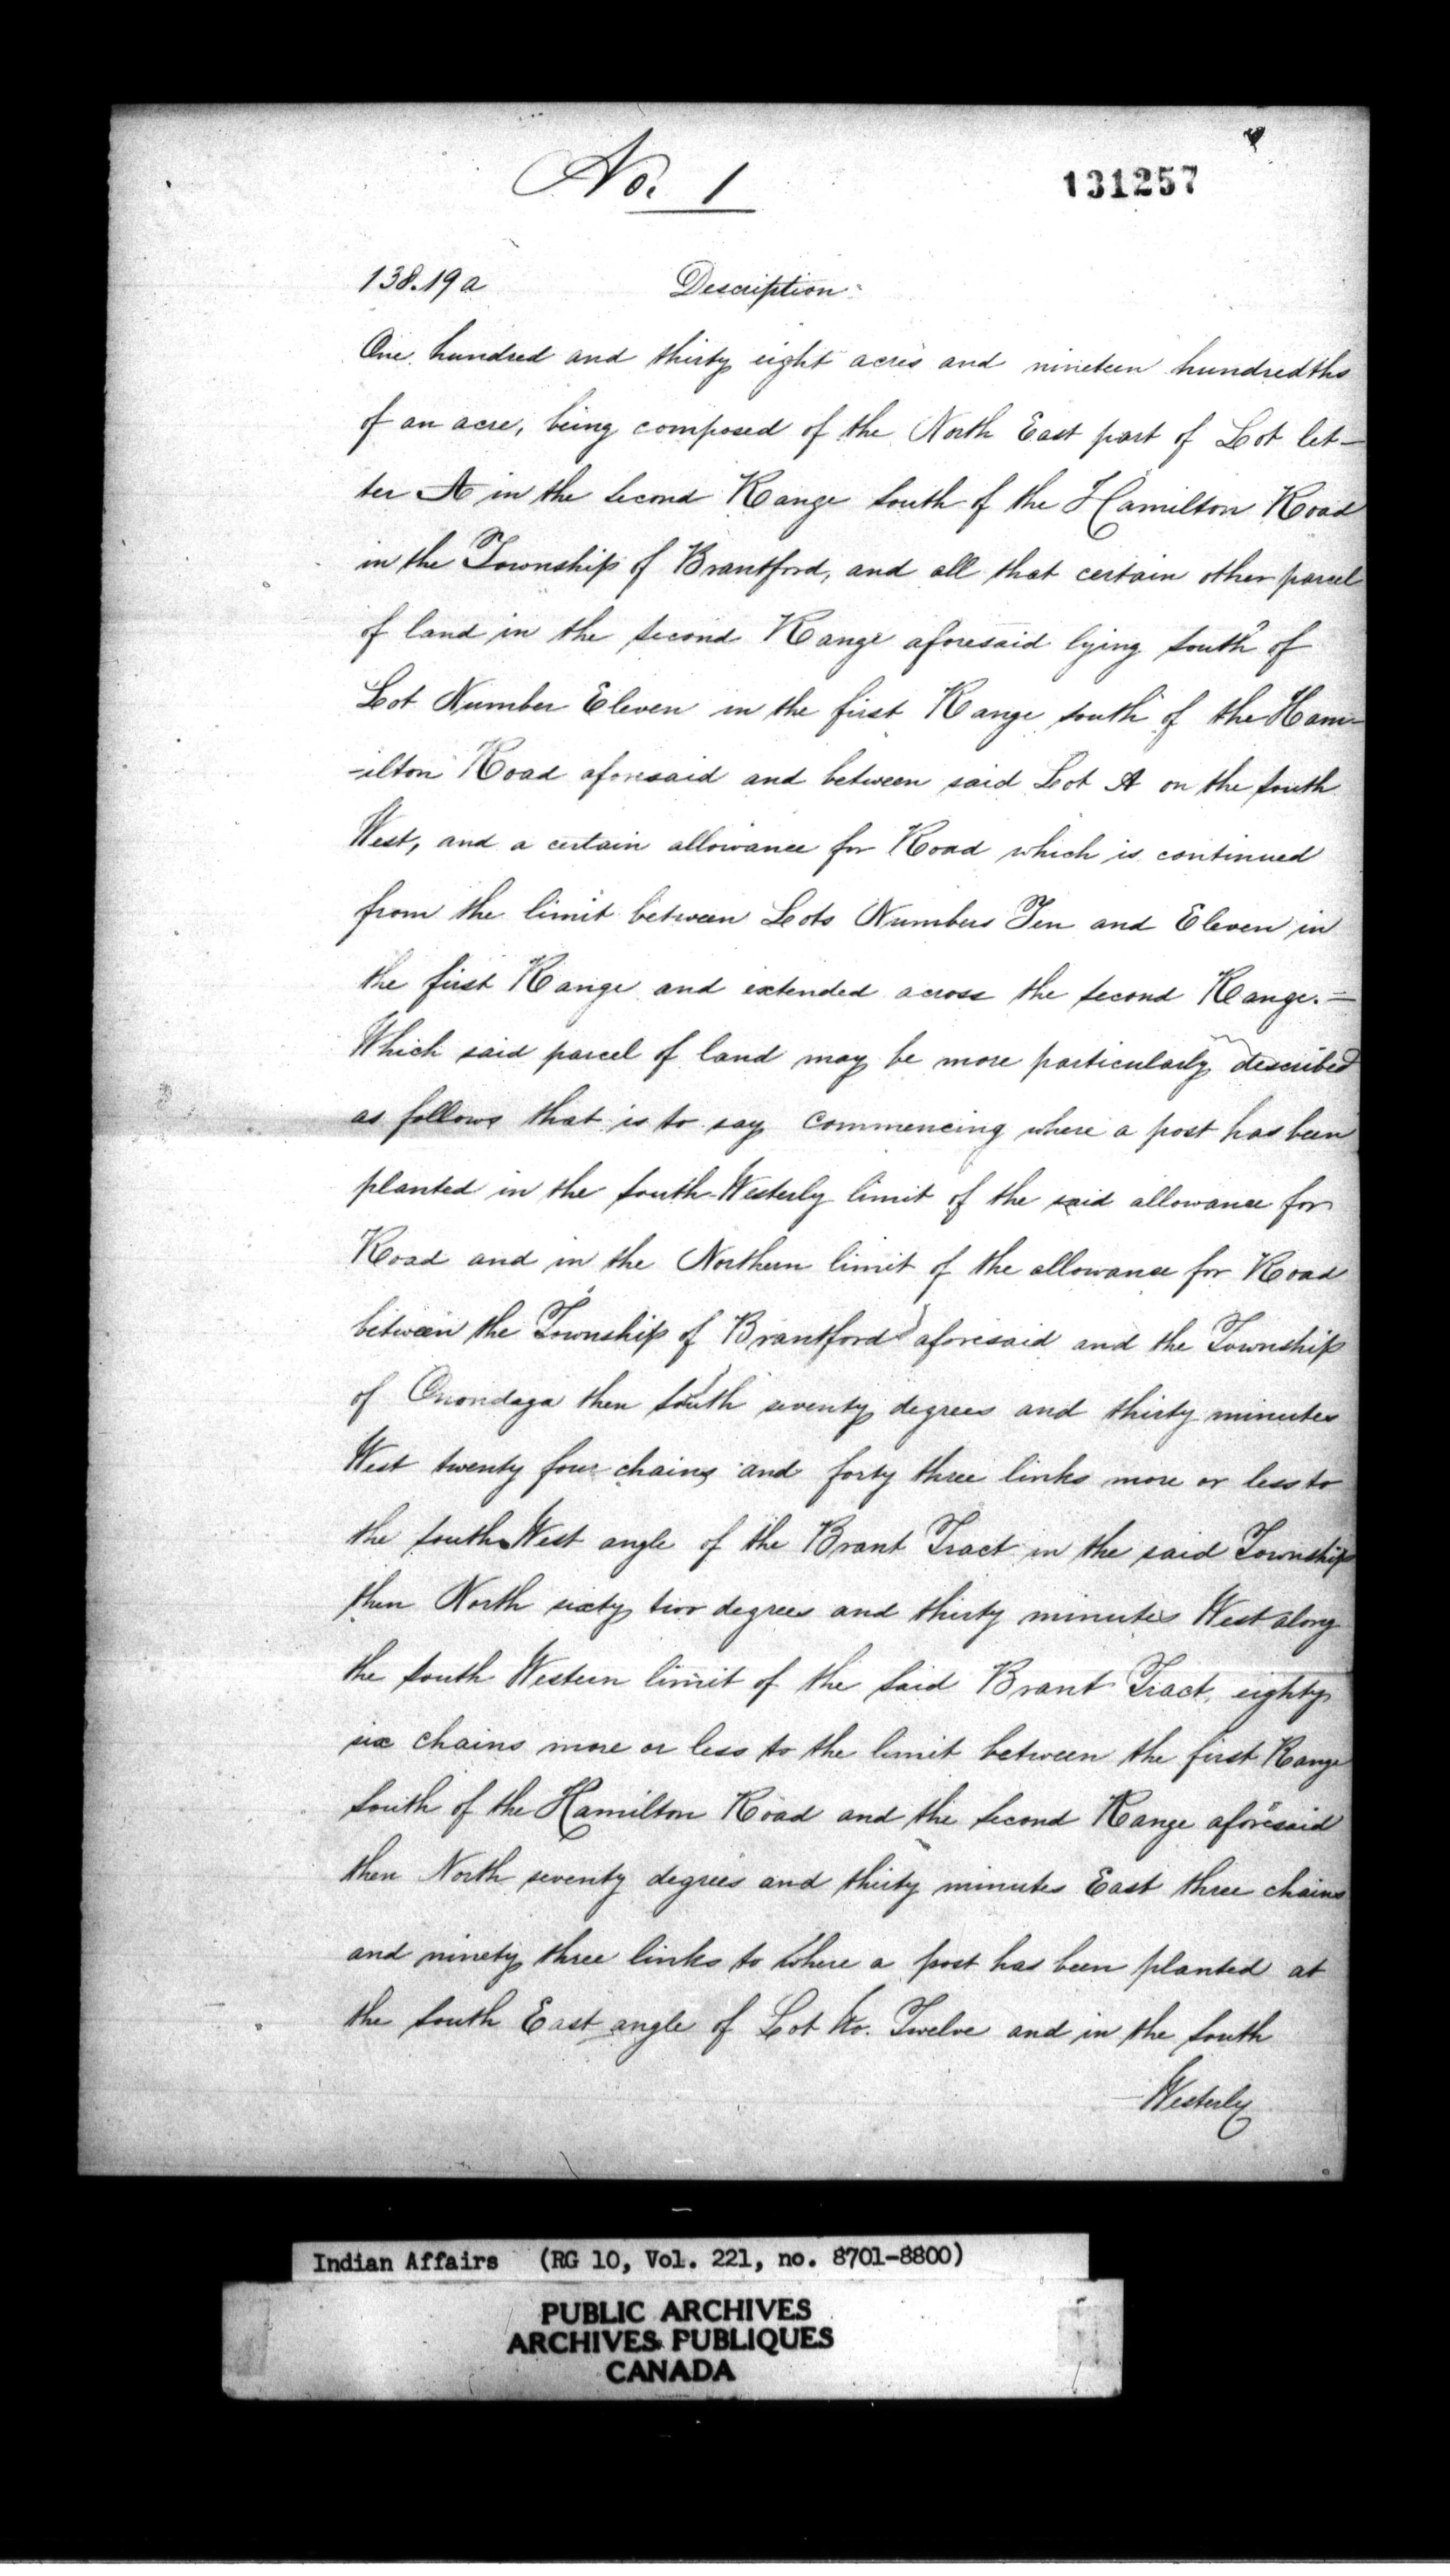 No. 1
131257
138.19a Description
One hundred and thirty eight acres and nineteen hundredths
of an acre, being composed of the North East part of Lot let-
ter A in the second Range South of the Hamilton Road
in the Township of Brantford, and all that certain other parcel
of land in the second Range aforesaid lying south of
Lot Number Eleven in the first Range south of the Ham-
-ilton Road aforesaid and between said Lot A on the South
West, and a certain allowance for Road which is continued
from the limit between Lots Numbers Ten and Eleven in
the first Range and extended across the second Range. =
Which said parcel of land may be more particularly described
as follows that is to say commencing where a post has been
planted in the South-Westerly limit of the said allowance for
Road and in the Northern limit of the allowance for Road
between the Township of Brantford aforesaid and the Township
of Onondaga then South seventy degrees and thirty minutes
West twenty four chains and forty three links more or less to
the South West angle of the Brant Tract in the said Township
then North sixty two degrees and thirty minutes West along
the South Western limit of the said Brant Tract, eighty
six chains more or less to the limit between the first Range
South of the Hamilton Road and the second Range aforesaid
then North seventy degrees and thirty minutes East three chains
and ninety three links to where a post has been planted at
the South East angle of Lot No. Twelve and in the South
Westerly
Indian Affairs (RG 10, Vol. 221, no. 8701-8800)
PUBLIC ARCHIVES
ARCHIVES PUBLIQUES
CANADA